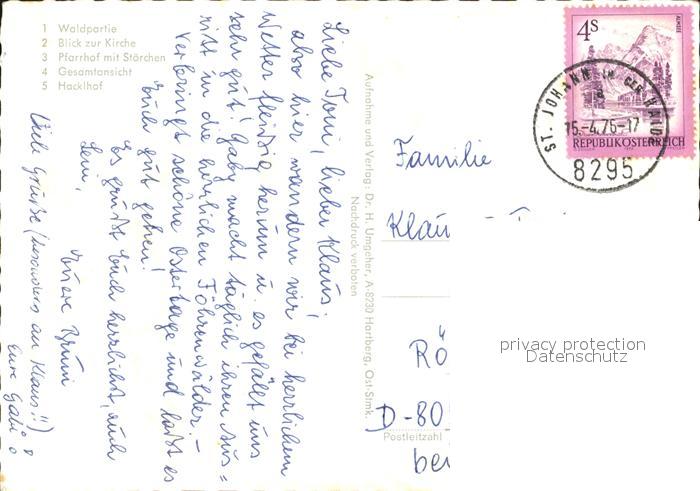 1 Waldpartie
2 Blick zur Kirche
3 Pfarrhof mit Störchen
4 Gesamtansicht
5 Hacklhof
Liebe Toni, lieber Klaus,
also hier wandern wir bei herrlichem
Wetter fleißig herum u. es gefällt uns
sehr gut! Gaby macht täglich ihren Aus=
ritt in die herrlichen Föhrenwälder. -
Verbringt schöne Ostertage und laßt es
Euch gut gehen!
Es grüßt Euch herzlichst, auch
Leni,
Eure Brüni
Viele Grüße (besonders an Klaus!!)
Eure Gabi
Aufnahme und Verlag: Dr. H. Umgeher, A-8230 Hartberg, Ost-Stmk.
Nachdruck verboten
4S
ALMSEE
REPUBLIK ÖSTERREICH
ST. JOHANN IN DER HAIDE
15.-4.76-17
8295
Familie
Klau
RÖ
D-80
Postleitzahl
bei
privacy protection
Datenschutz